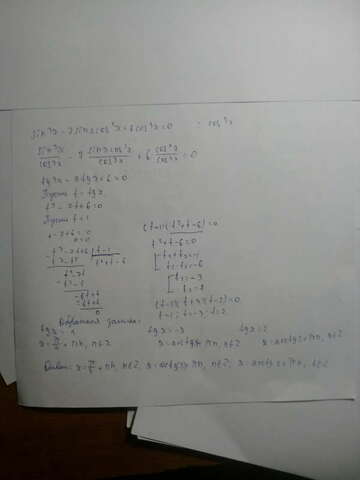 sin³x - 7sinxcos²x + 6cos³x = 0 : cos³x
sin³x/cos³x - 7 sinxcos²x/cos³x + 6 cos³x/cos³x = 0
tg³x - 7tgx + 6 = 0
t = tgx
t³ - 7t + 6 = 0
t = 1
1 - 7 + 6 = 0
0 = 0
t³ - 7t + 6 | t - 1
t³ - t² | t² + t - 6
t² - 7t
t² - t
-6t + 6
-6t + 6
0
(t-1)(t²+t-6) = 0
t² + t - 6 = 0
t₁ + t₂ = -1
t₁ t₂ = -6
t₁ = -3
t₂ = 2
(t-1)(t+3)(t-2) = 0
t = 1; t = -3; t = 2
замена:
tgx = 1 tgx = -3 tgx = 2
x = π/4 + πn, n∈Z x = -arctg3 + πn, n∈Z x = arctg2 + πn, n∈Z
x = π/4 + πn, n∈Z; x = -arctg3 + πn, n∈Z; x = arctg2 + πn, n∈Z